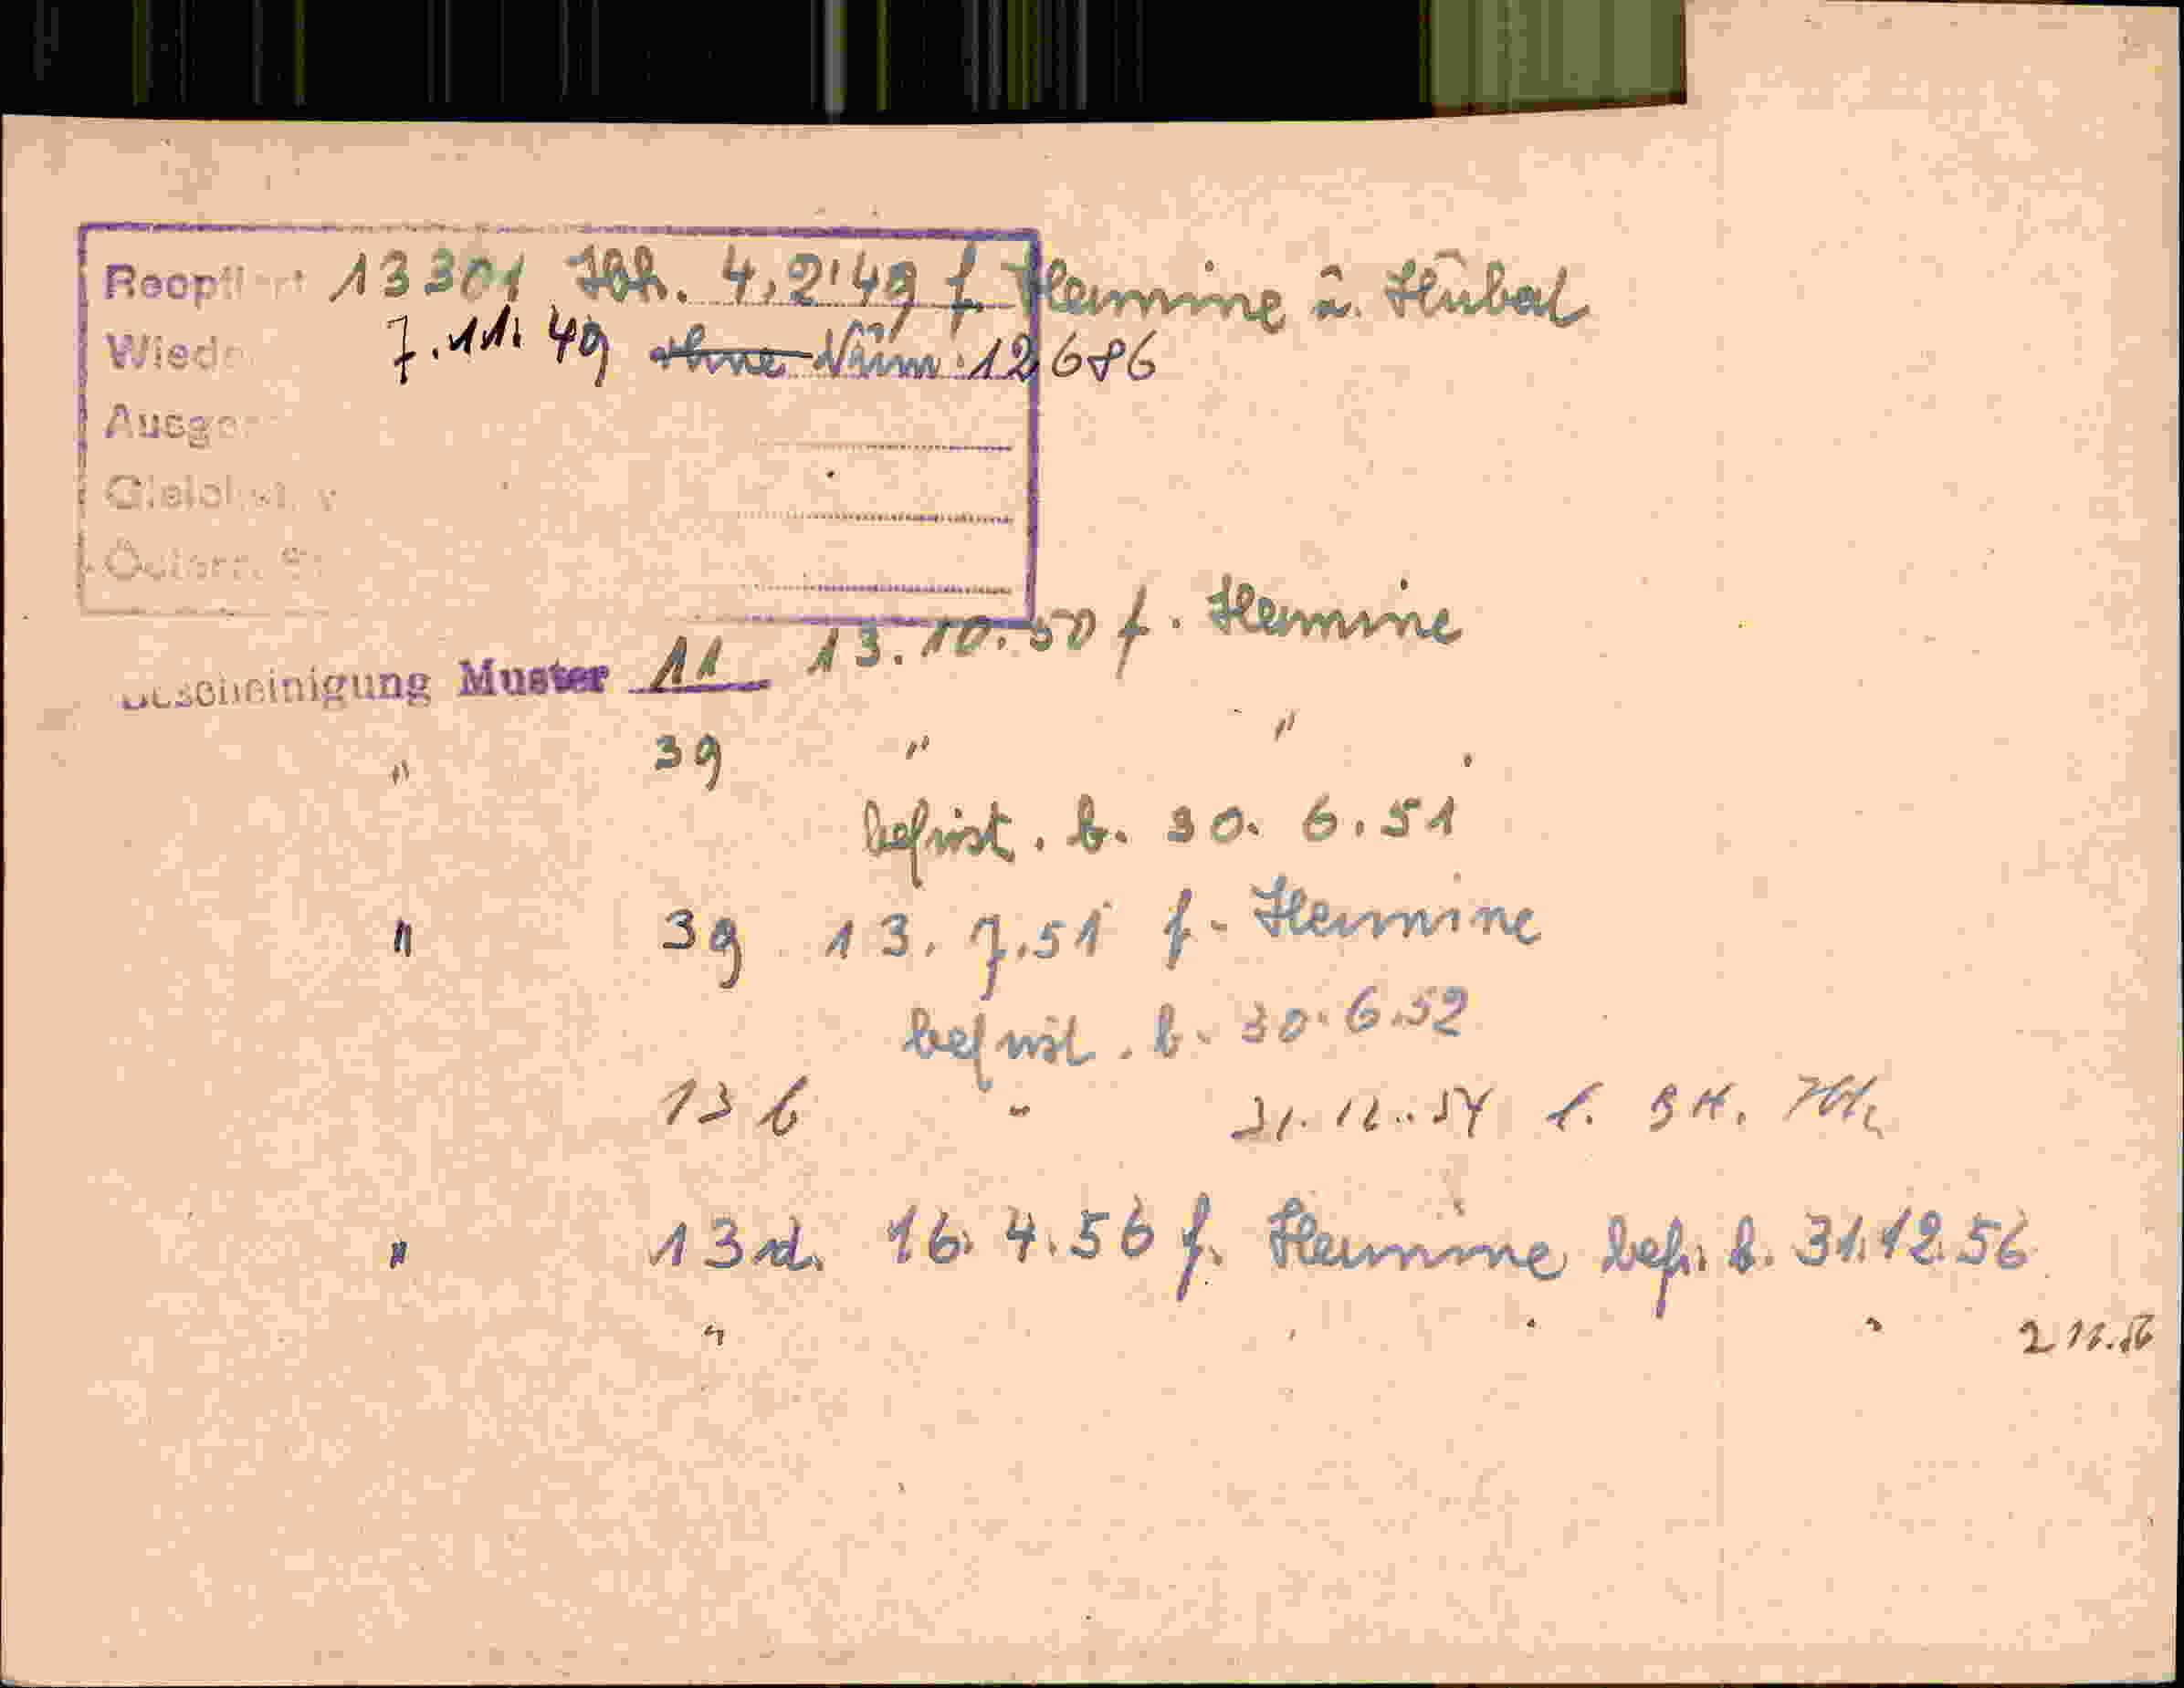 Reoptiert 13301 Joh. 4.2.49 f Hermine u. Hubal
Wied 7.11.49 ohne Num. 12686
Ausge
Gleich
Österr. S
Bescheinigung Muster 11 13.10.50 f. Hermine
" 39 " "
befrist. b. 30.6.51
" 39 13.7.51 f. Hermine
befrist. b. 30.6.52
13 b " 31.12.54
" 13d. 16.4.56 f. Hermine bef. b. 31.12.56
" " " "